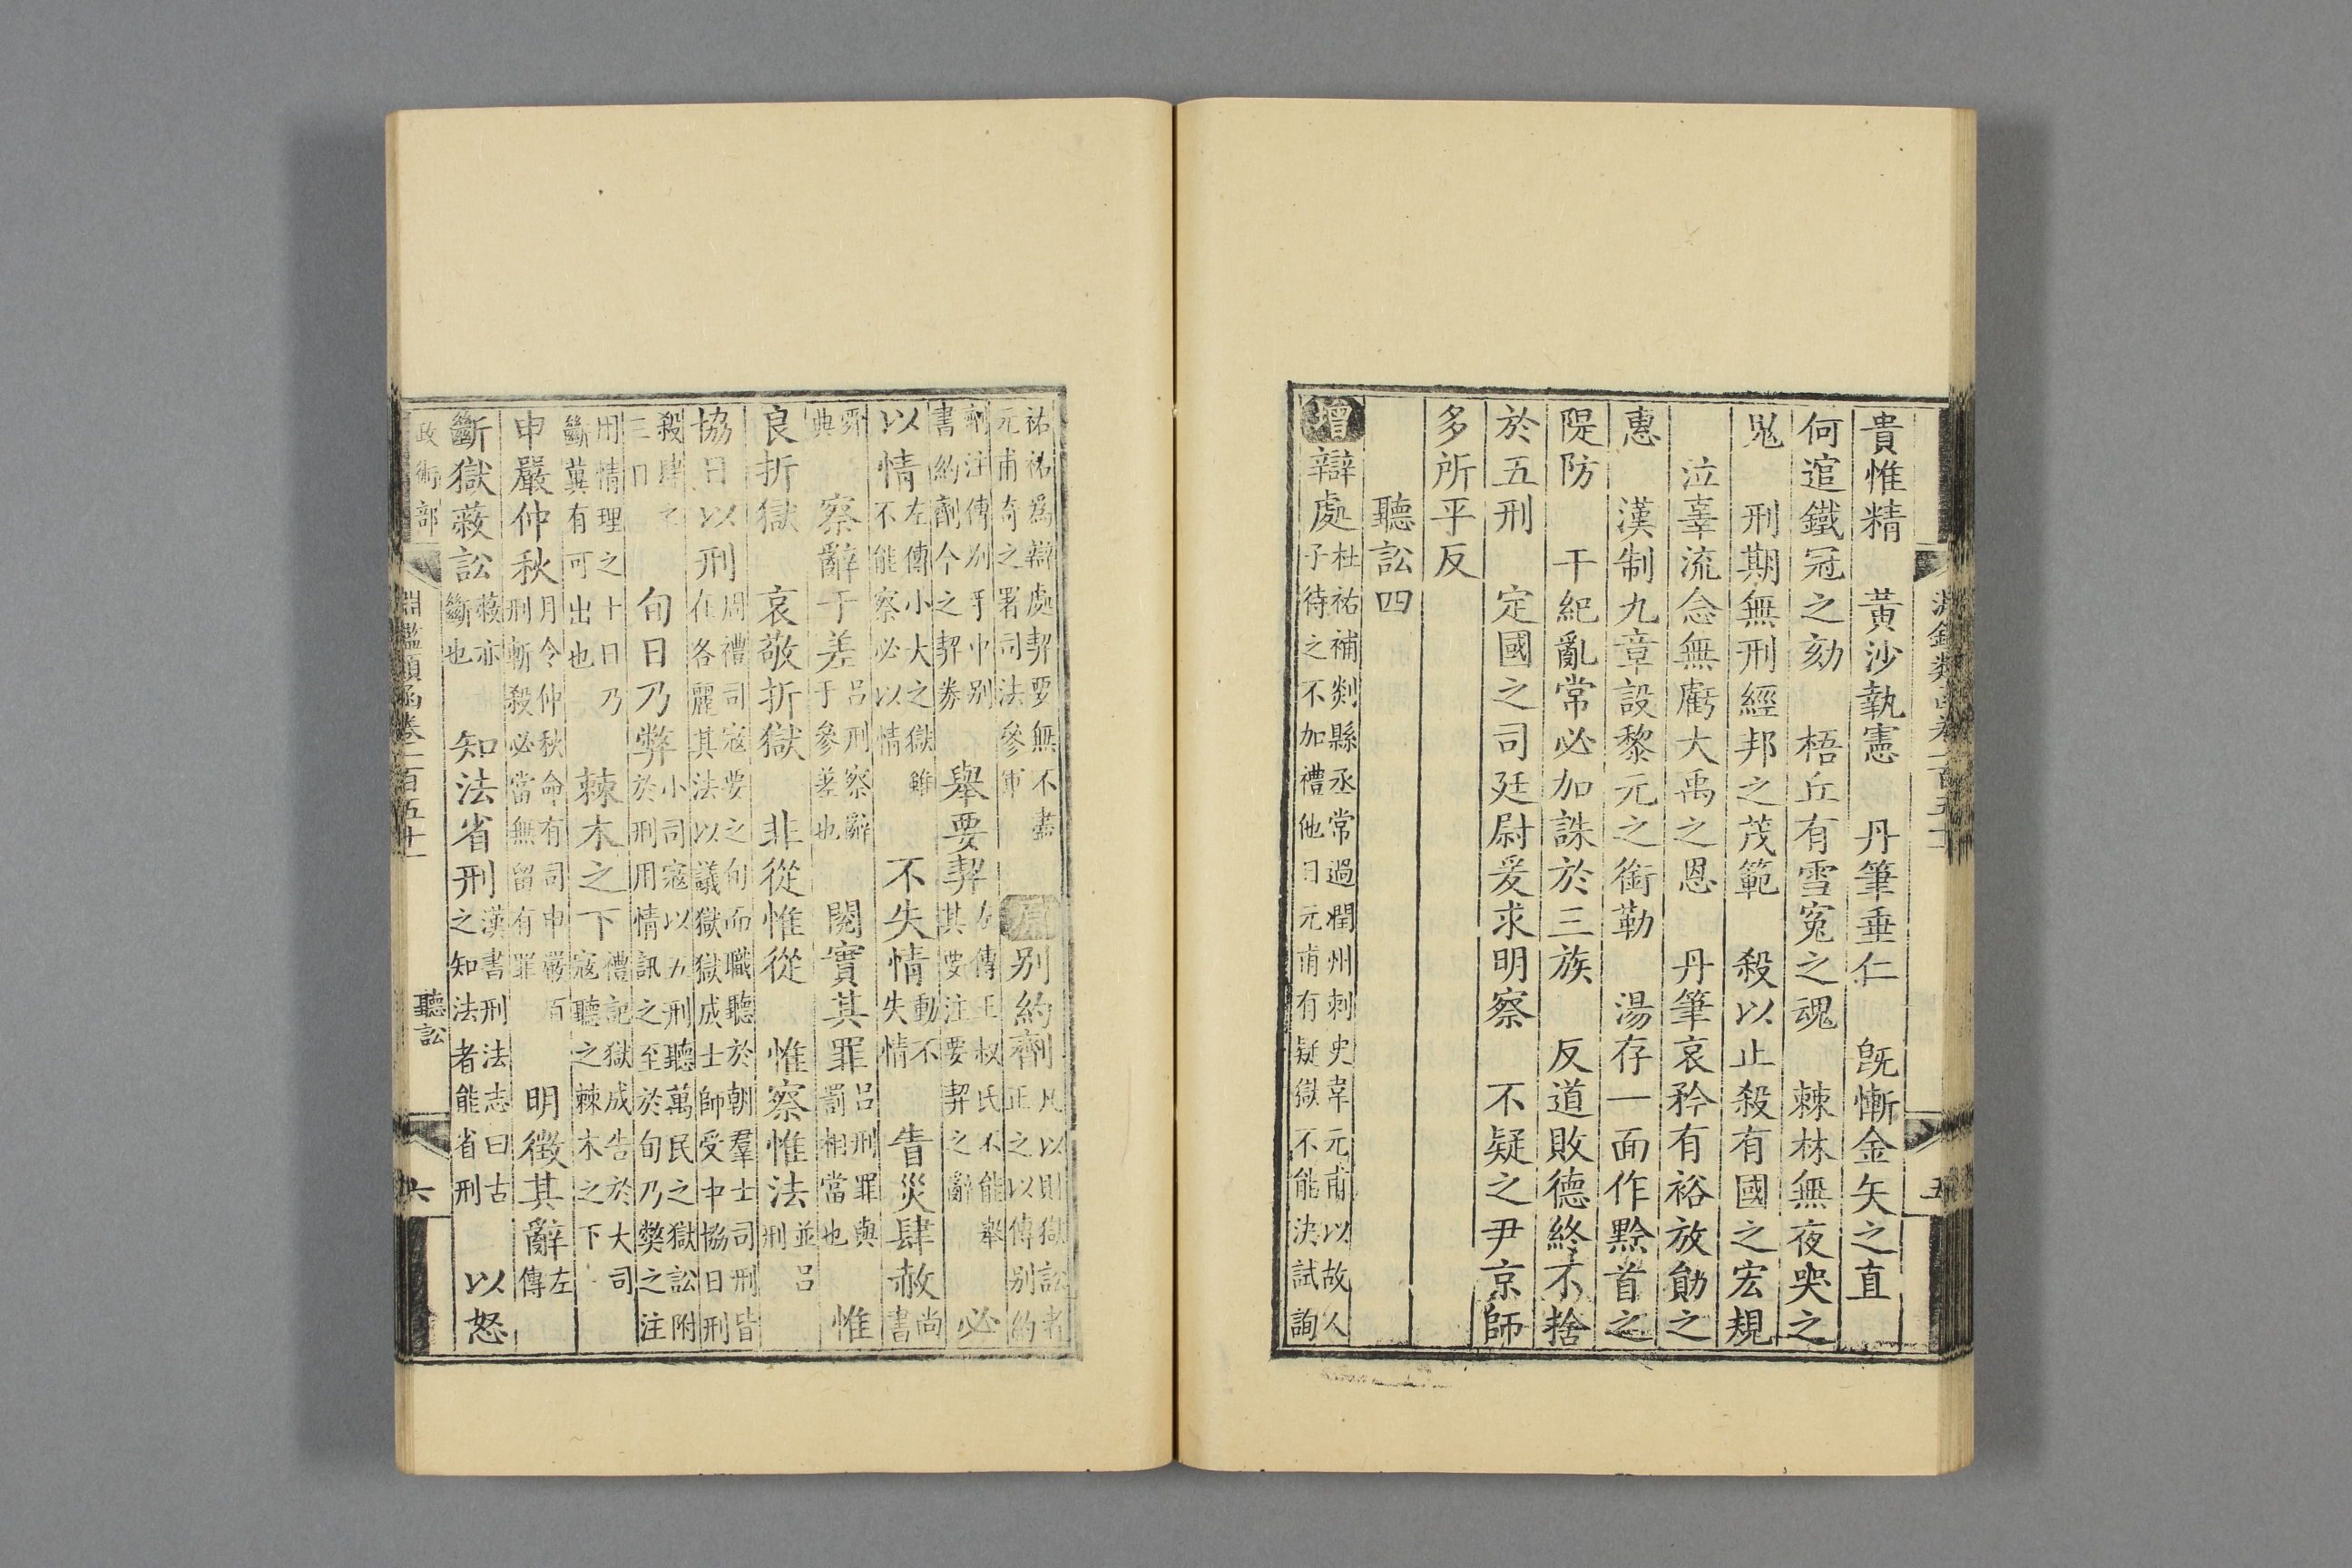 貴惟精 黃沙執憲 丹筆垂仁 旣慚金矢之直
何逭鐵冠之劾 梧丘有雪寃之魂 棘林無夜哭之
鬼 刑期無刑經邦之茂範 殺以止殺有國之宏規
泣辜流念無虧大禹之恩 丹筆哀矜有裕放勛之
惠 漢制九章設黎元之銜勒 湯存一面作黔首之
隄防 干紀亂常必加誅於三族 反道敗德終不捨
於五刑 定國之司廷尉爰求明察 不疑之尹京師
多所平反
聽訟四
增辯處 杜祐補剡縣丞常過潤州刺史韋元甫以故人
子待之不加禮他日元甫有疑獄不能決試詢
祐祐爲辯處契要無不盡
元甫奇之署司法參軍
原别約劑 凡以則獄訟者
正之以傅别約
劑注傅别手中别
書約劑今之契券
舉要契 左傳王叔氏不能舉
其要注要契之辭
必
以情 左傳小大之獄雖
不能察必以情
不失情 動不
失情
眚災肆赦 尚
書
舜
典
察辭于差 呂刑察辭
于參差也
閱實其罪 呂刑罪與
罰相當也
惟
良折獄 哀敬折獄 非從惟從 惟察惟法 並呂
刑
協日以刑 周禮司寇要之旬而職聽於朝羣士司刑皆
在各麗其法以議獄獄成士師受中協日刑
殺肆之
三日
旬日乃弊 小司寇以五刑聽萬民之獄訟附
於刑用情訊之至於旬乃獘之注
用情理之十日乃
斷冀有可出也
棘木之下 禮記獄成告於大司
寇聽之棘木之下
申嚴仲秋 月令仲秋命有司申嚴百
刑斬殺必當無留有罪
明徵其辭 左
傳
斷獄蔽訟 蔽亦
斷也
知法省刑 漢書刑法志曰古
之知法者能省刑
以怒
政術部
淵鑑類函卷一百五十一
聽訟
六